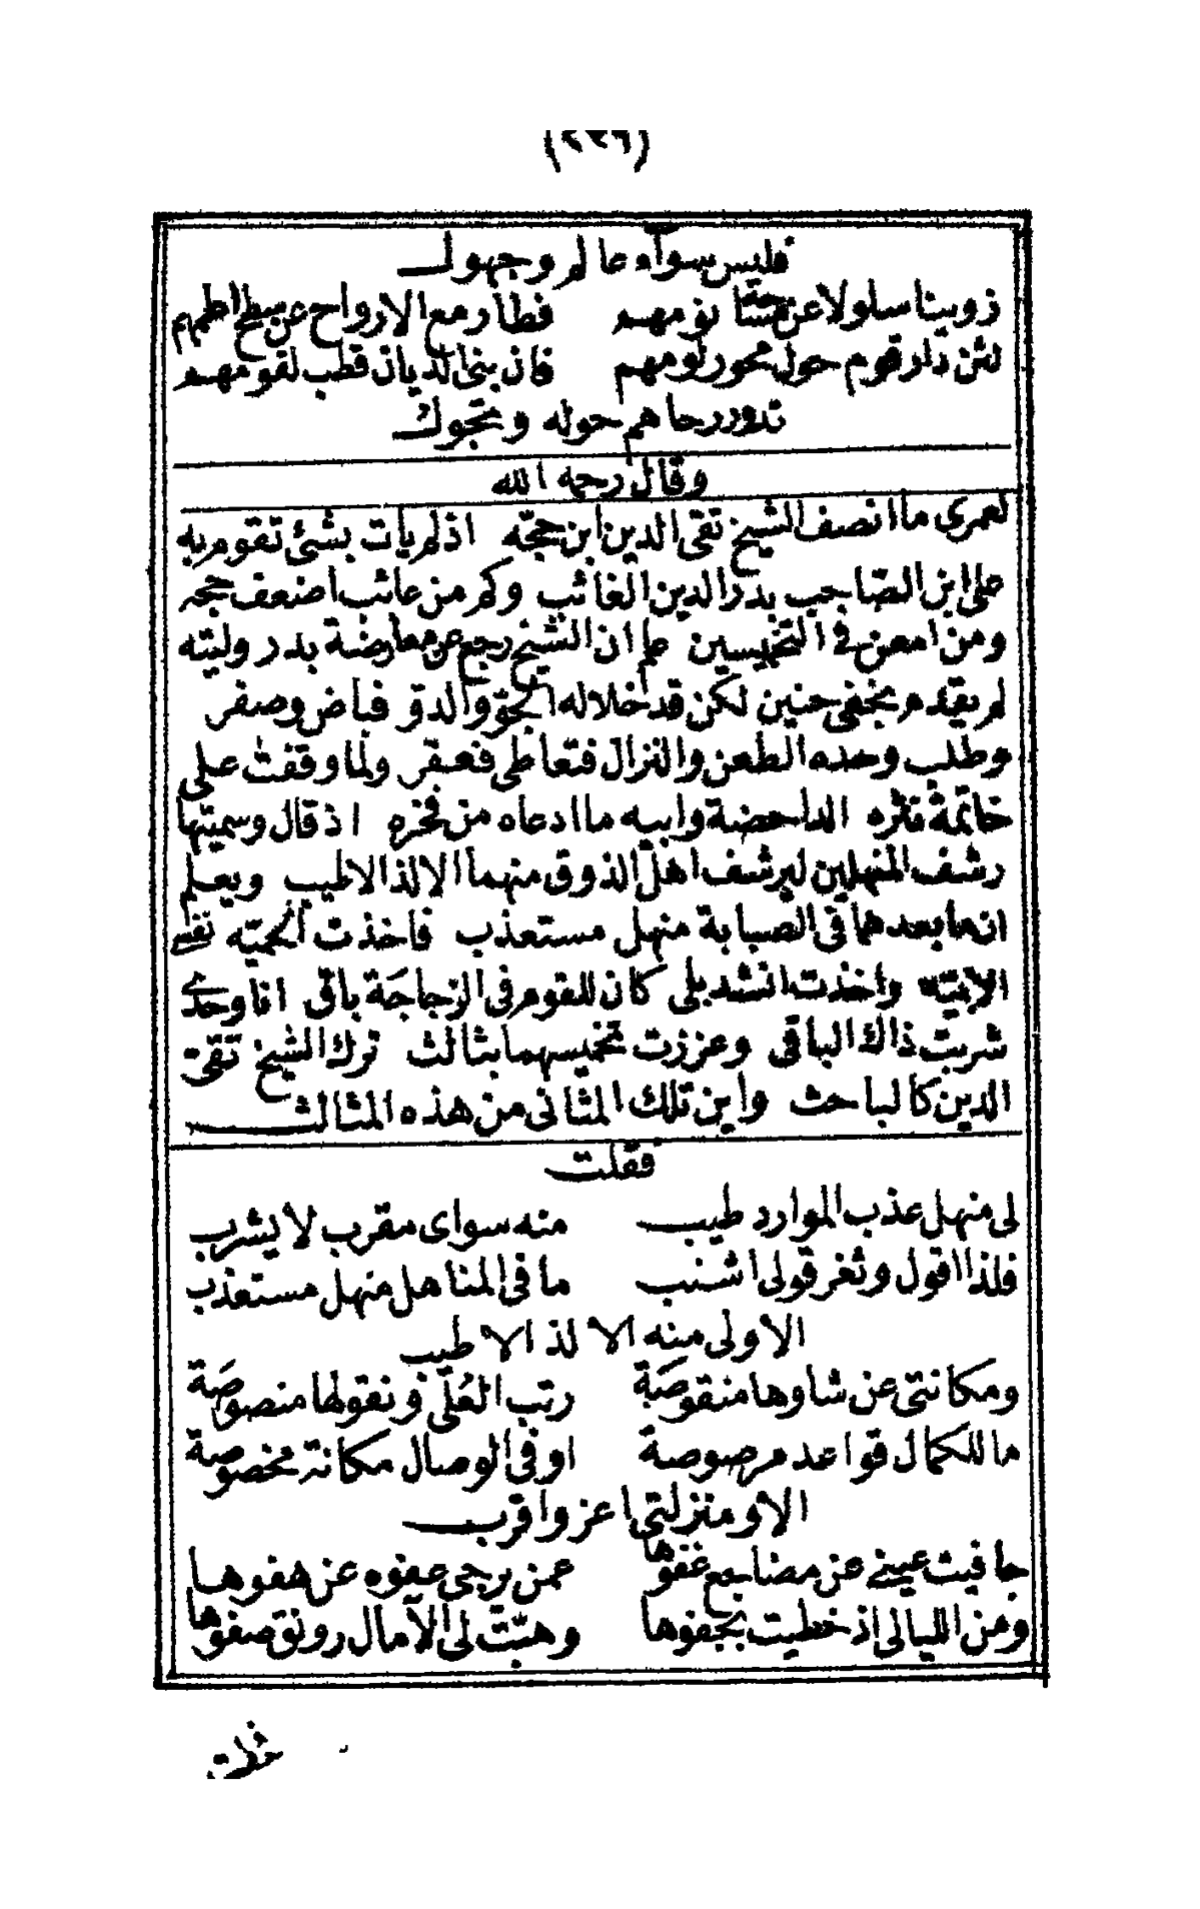 (٢٢٦)
فليس سوآء عالم وجهول
زويينا سلولا عن نومهم فطار مع الارواح عن سطح اطمهم
لئن دار قوم حول محور لومهم فان بنى الديان قطب لقومهم
تدور رحاهم حوله وتجول
وقال رحمه الله
لعمرى ما انصف الشيخ تقى الدين ابن حجّه اذ لم يات بشئ تقوم به
على ابن الصّاحب بدر الدين الغائب وكم من عائب اضعف حجه
ومن امعن فى التخميسين علم ان الشيخ رجع عن معارضة بدر وليته
لم يقدم بخفى حنين لكن قد خلا له الجوّ والدوّ فباض وصفر
وطلب وحده الطعن والنزال فتعاطى فعقر ولما وقفت على
خاتمة نثره الداحضة وابيه ما ادعاه من فخره اذ قال وسميتها
رشف المنهلين ليرشف اهل الذوق منهما الالذ الاطيب ويعلم
ان ما بعدهما فى الصبابة منهل مستعذب فاخذت الحميّه نفسى
الابيّه واخذت انشد بلى كان للقوم فى الزجاجة باقى انا وحدى
شربت ذاك الباقى وعززت تخميسهما بثالث ترك الشيخ تقى
الدين كالباحث واين تلك المثانى من هذه المثالث
فقلت
لى منهل عذب الموارد طيب منه سواى مقرب لا يشرب
فلذا اقول وثغر قولى اشنب ما فى المناهل منهل مستعذب
الا ولى منه الالذ الاطيب
ومكانتى عن شاوها منقوصَة رتب العُلىٰ ونقولها منصوصَة
ما للكمال قواعد مرصوصة او فى الوصال مكانة مخصوصة
الا ومنزلتى اعز واقرب
جافيت عينى عن مضاجع غفوها عمن يرجى عفوه عن هفوها
ومن الليالى اذ خطيت بجفوها وهبّت لى الآمال رونق صفوها